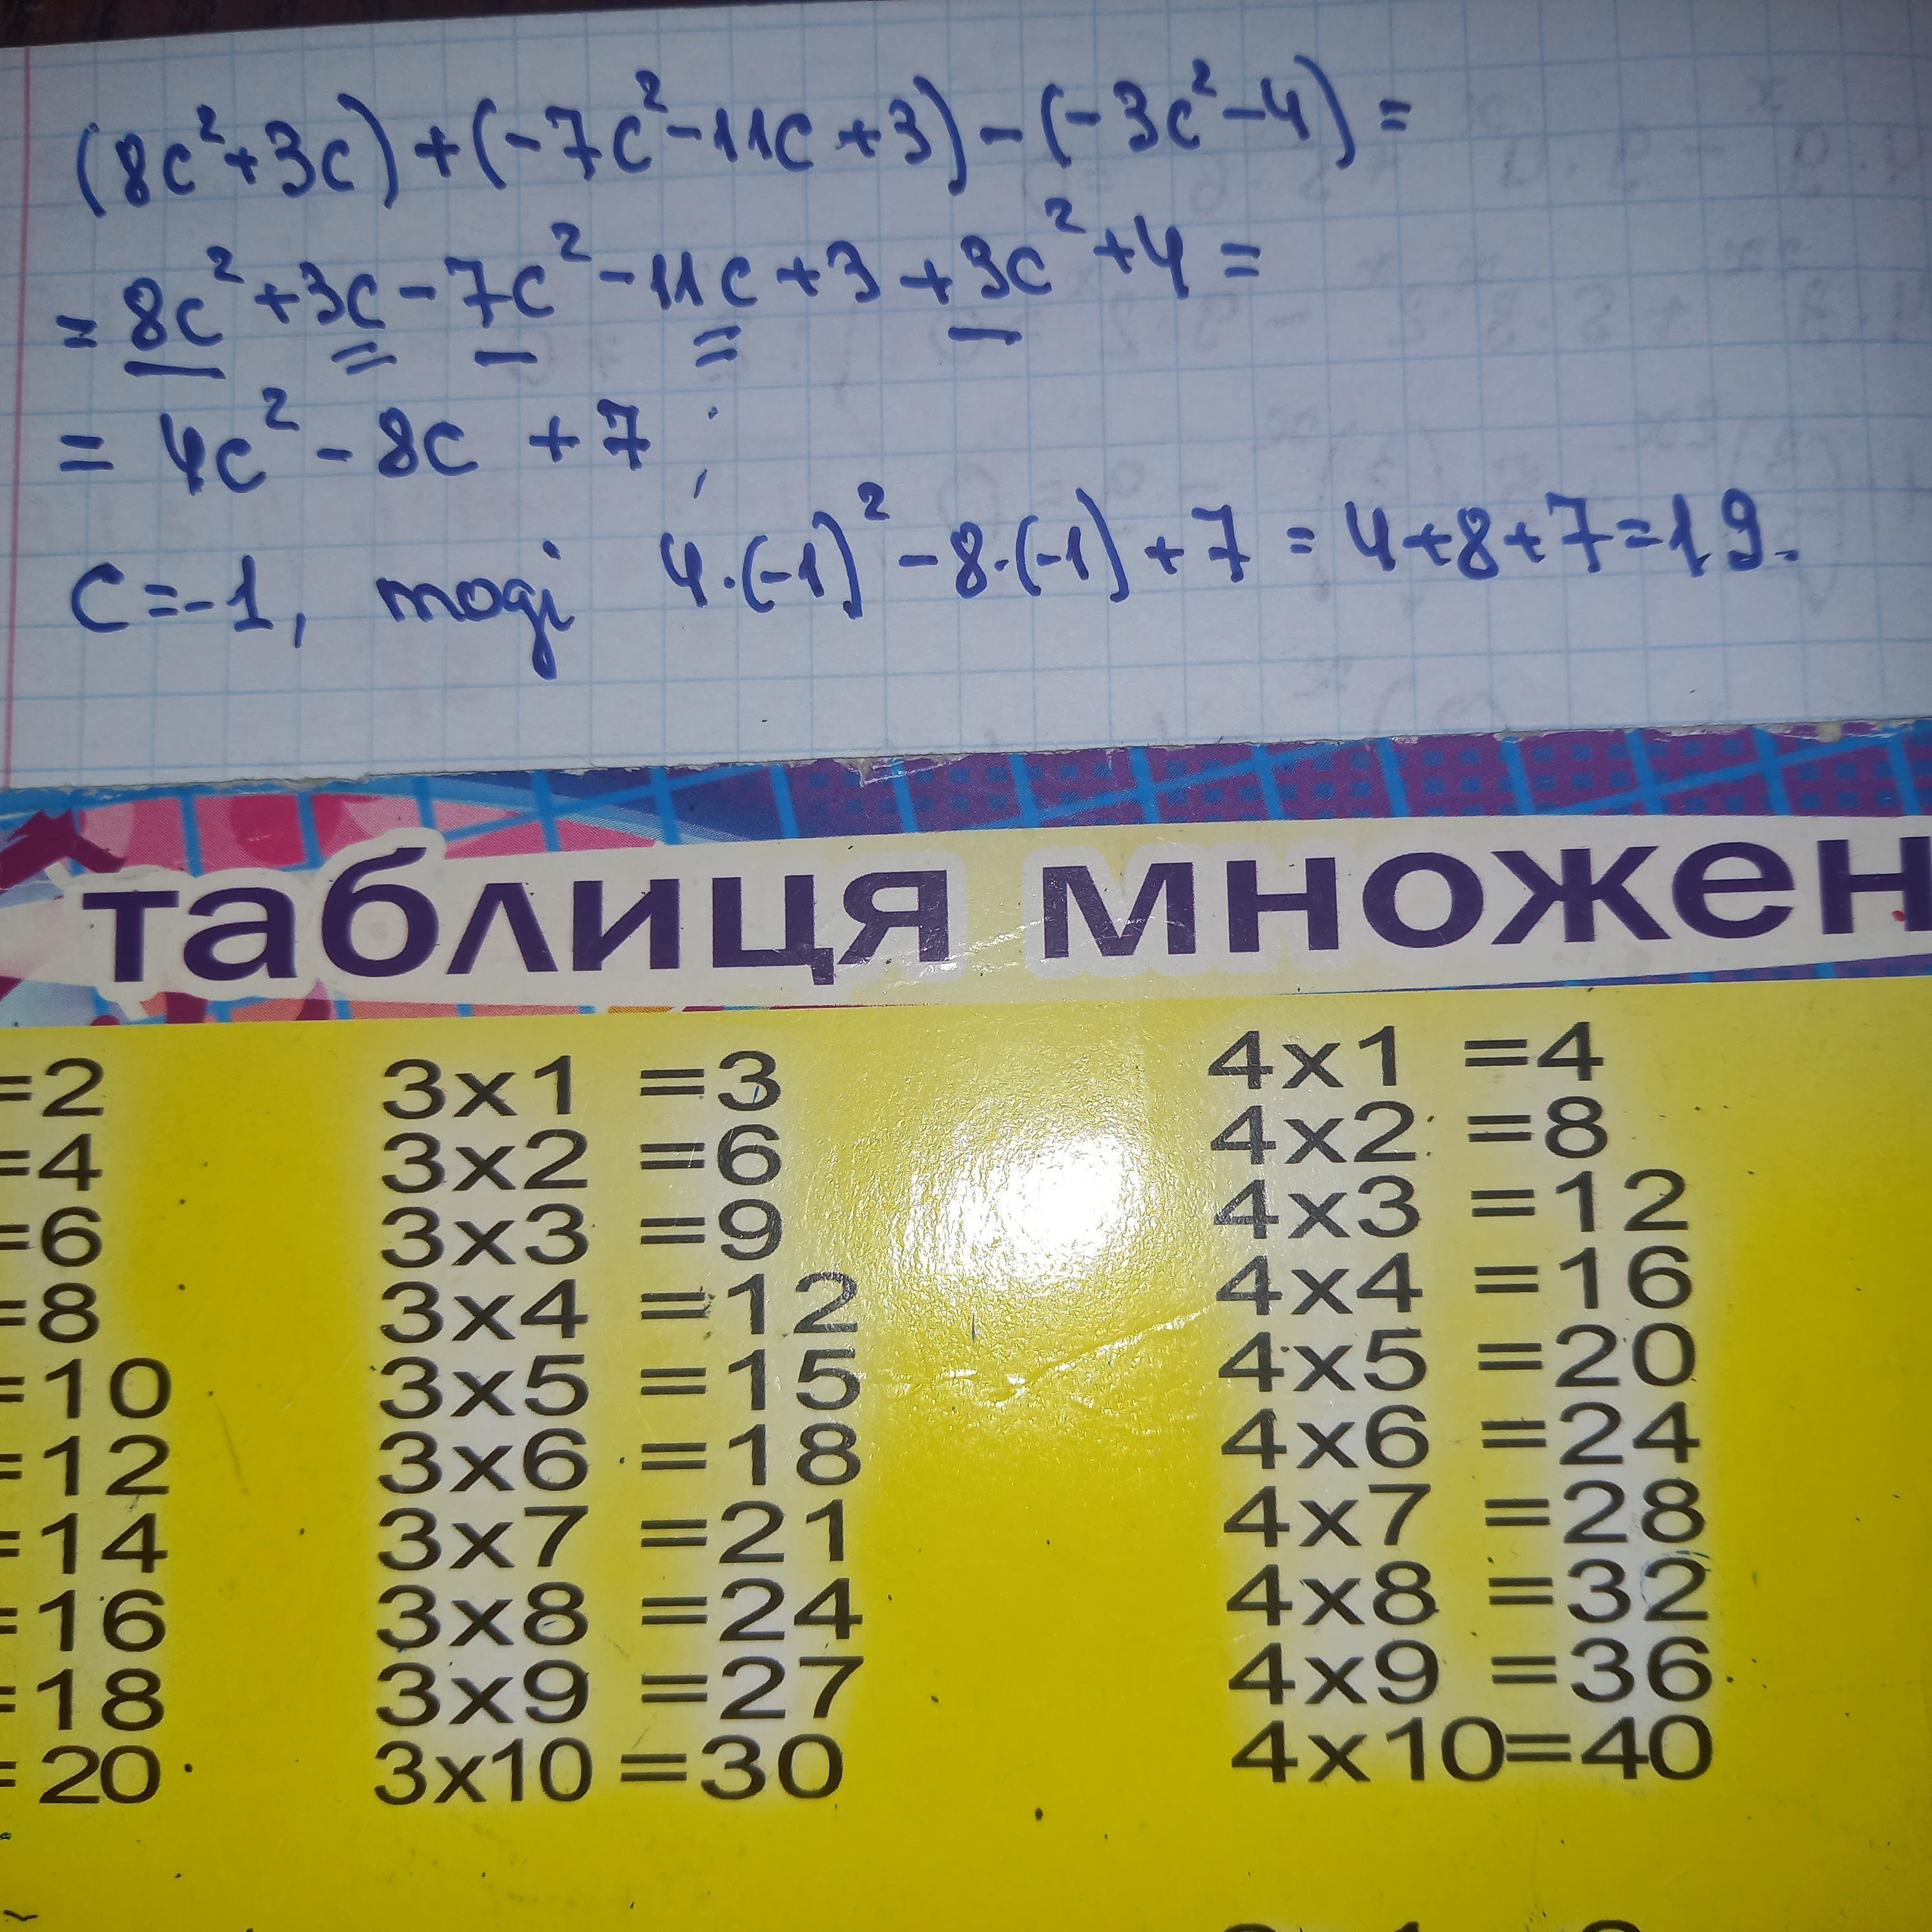 (8c²+3c)+(-7c²-11c+3)-(-3c²-4)=
=8c²+3c-7c²-11c+3+3c²+4=
=4c²-8c+7;
c=-1, тоді 4·(-1)²-8·(-1)+7=4+8+7=19.
таблиця множен
=2 3x1 =3 4x1 =4
=4 3x2 =6 4x2 =8
=6 3x3 =9 4x3 =12
=8 3x4 =12 4x4 =16
=10 3x5 =15 4x5 =20
=12 3x6 =18 4x6 =24
=14 3x7 =21 4x7 =28
=16 3x8 =24 4x8 =32
=18 3x9 =27 4x9 =36
=20 3x10 =30 4x10=40